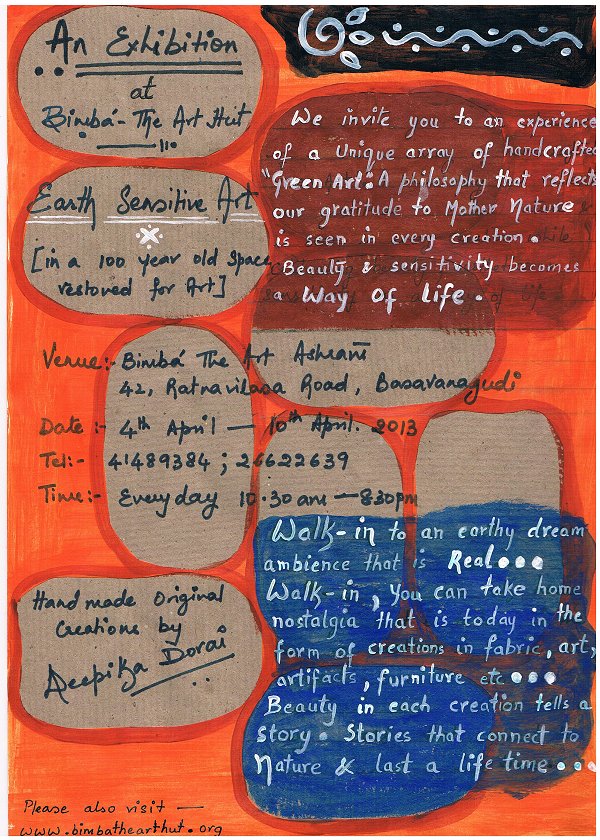 An Exhibition
at
Bimba - The Art Hut
Earth Sensitive Art
[in a 100 year old space
restored for Art]
We invite you to an experience
of a Unique array of handcrafted
"Green Art". A philosophy that reflects
our gratitude to Mother Nature &
is seen in every creation.
Beauty & sensitivity becomes
a Way Of life.
Venue:- Bimba The Art Ashram
42, Ratnavilasa Road, Basavanagudi
Date :- 4th April — 10th April. 2013
Tel:- 41489384 ; 26622639
Time:- Everyday 10.30 am — 8.30pm
Walk-in to an earthy dream
ambience that is Real...
Walk-in, you can take home
nostalgia that is today in the
form of creations in fabric, art,
artifacts, furniture etc...
Beauty in each creation tells a
story. Stories that connect to
Nature & last a life time...
Hand made Original
Creations by
Deepika Dorai
Please also visit —
www.bimbathearthut.org